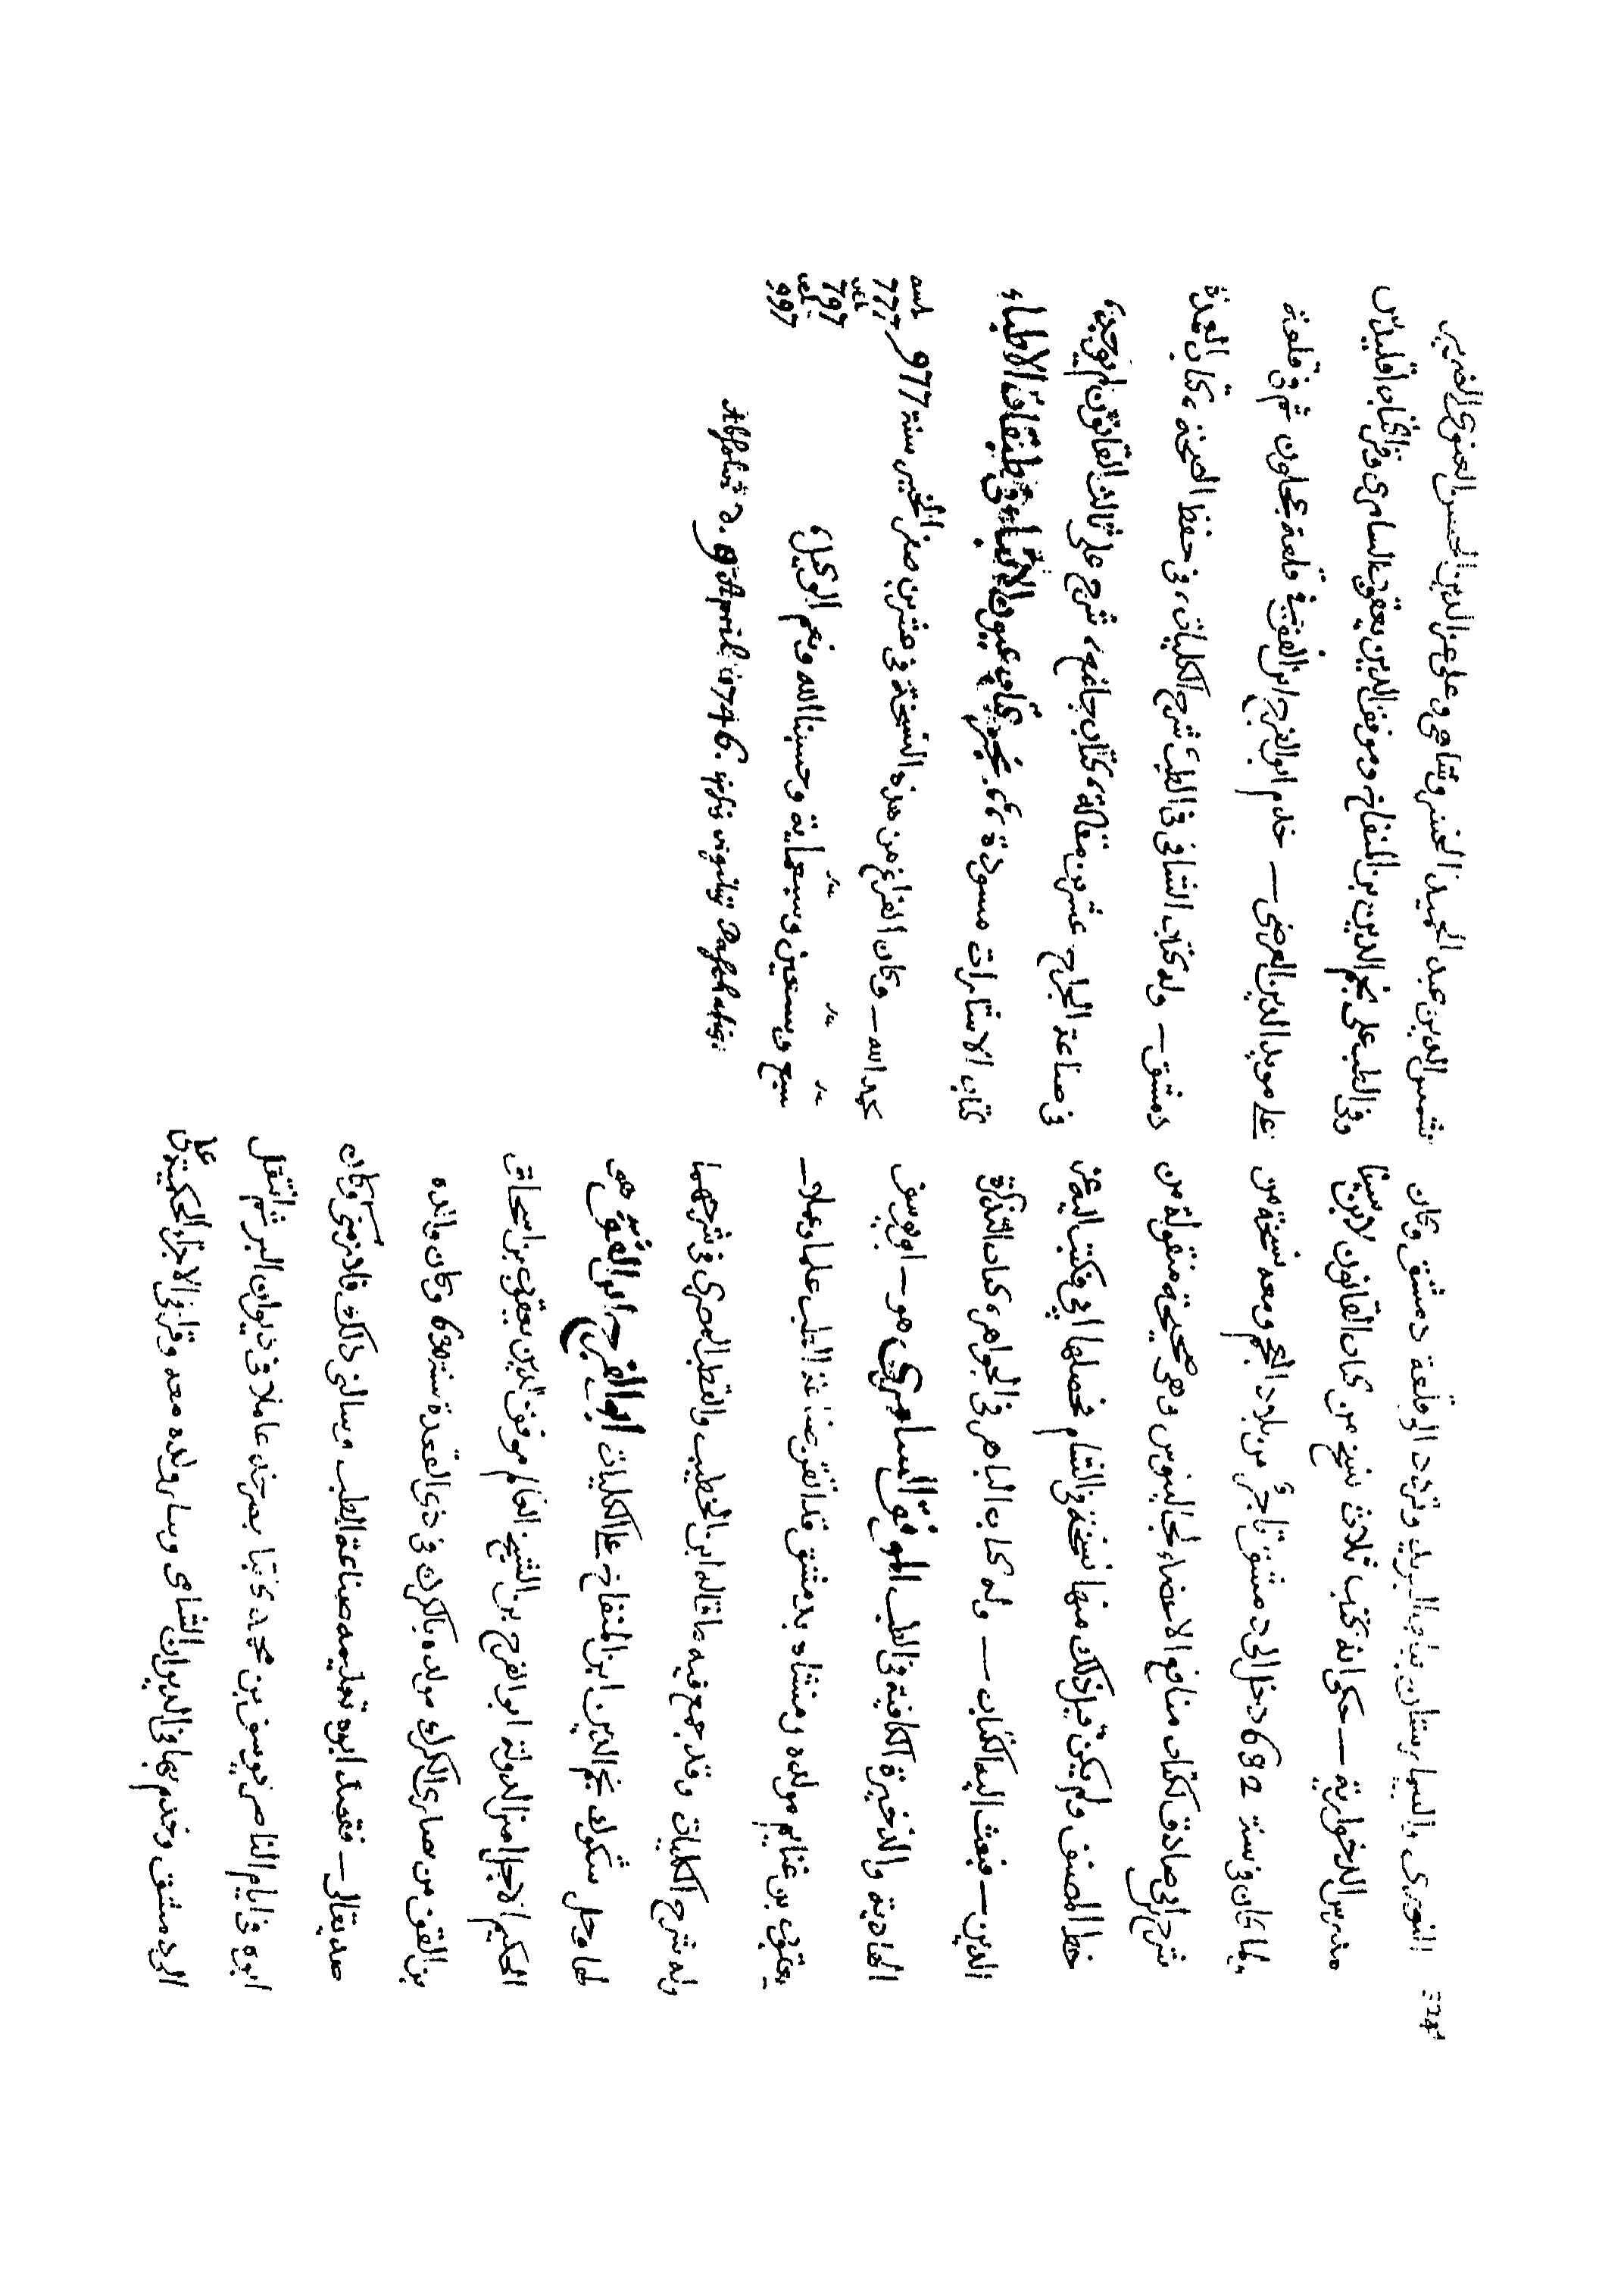 328
النورى والبيمارستان بباب البريد وتردد الى قلعة دمشق وكان
مدرس الدخوارية — حكى انه كتب ثلاث نسخ من كتاب القانون لابن سينا
ولما كان فى سنة 632 دخل الى دمشق تاجر من بلاد العجم ومعه نسخة من
شرح ابن ابى صادق لكتاب منافع الاعضاء لجالينوس وهى صحيحة منقولة من
خط المصنف ولم يكن قبل ذلك منها نسخة فى الشام فحصلها ابى فكتب اليه عز
الدين — فبعث اليه الكتاب — وله كتاب الباهر فى الجواهر، كتاب التذكرة
الهادية والذخيرة الكافية فى الطب الموفق السامرى هو — ابو يوسف
يعقوب بن غنايم مولده ومنشاه بدمشق قد اتقن صناعة الطب علما وعملا —
وله شرح الكليات وقد جمع فيه ما قاله ابن الخطيب والقطب المصرى فى شرحهما
لها وحل شكوك نجم الدين ابن المنفاخ على الكليات ابو الفرج ابن القف هو
الحكيم الاجل امين الدولة ابو الفرج بن الشيخ العالم موفق الدين يعقوب بن اسحاق
بن القف من نصارى الكرك مولده بالكرك فى ذى القعدة سنة 630 وكان والده
صديقا لى — فقصد ابوه تعليمه صناعة الطب وسالنى ذلك فلازمنى وكان
ابوه فى ايام الناصر يوسف بن محمد كاتبا بصرخد عاملا فى ديوان البر ثم انتقل
الى دمشق وخدم بها فى الديوان الشامى وسار ولده معه وقرا فى الاجزاء الحكمية على
شمس الدين عبد الحميد الخسروشاهى وعلى عز الدين الحسن الغنوى الضرير
وفى الطب على نجم الدين بن المنفاخ وموفق الدين يعقوب السامرى وقرا كتاب اقليدس
على مويد الدين العرضى — خدم ابو الفرج ابن القف فى قلعة عجلون ثم فى قلعة
دمشق — وله كتاب الشافى فى الطب، شرح الكليات، فى حفظ الصحة، كتاب العمدة
فى صناعة الجراح عشرين مقالة، كتاب جامع، شرح على ثالث القانون لم يوجد،
كتاب الاشارات مسودة، نجز كتاب عيون الانباء فى طبقات الاطباء
بحمد الله — وكان الفراغ من هذه النسخة فى عشرين صفر الخير سنة 977
سبع وسبعين وسبعماية وحسبنا الله ونعم الوكيل
777
797
997
9 April 1746.